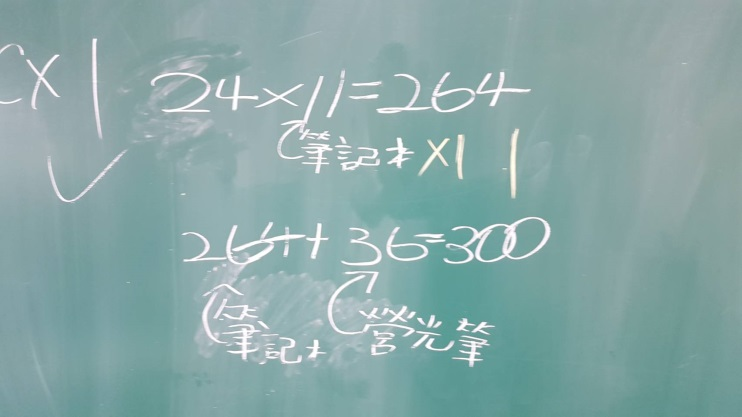 cx1
24×11=264
筆記本×11
264+36=300
筆記本 營光筆